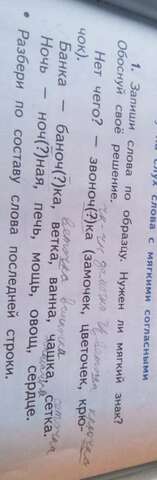 слух слова с мягкими согласными
1. Запиши слова по образцу. Нужен ли мягкий знак?
Обоснуй своё решение.
Нет чего? — звоноч(?)ка (замочек, цветочек, крю-
чок).
Банка — баноч(?)ка, ветка, ванна, чашка, сетка.
Ночь — ноч(?)ная, печь, мощь, овощ, сердце.
• Разбери по составу слова последней строки.